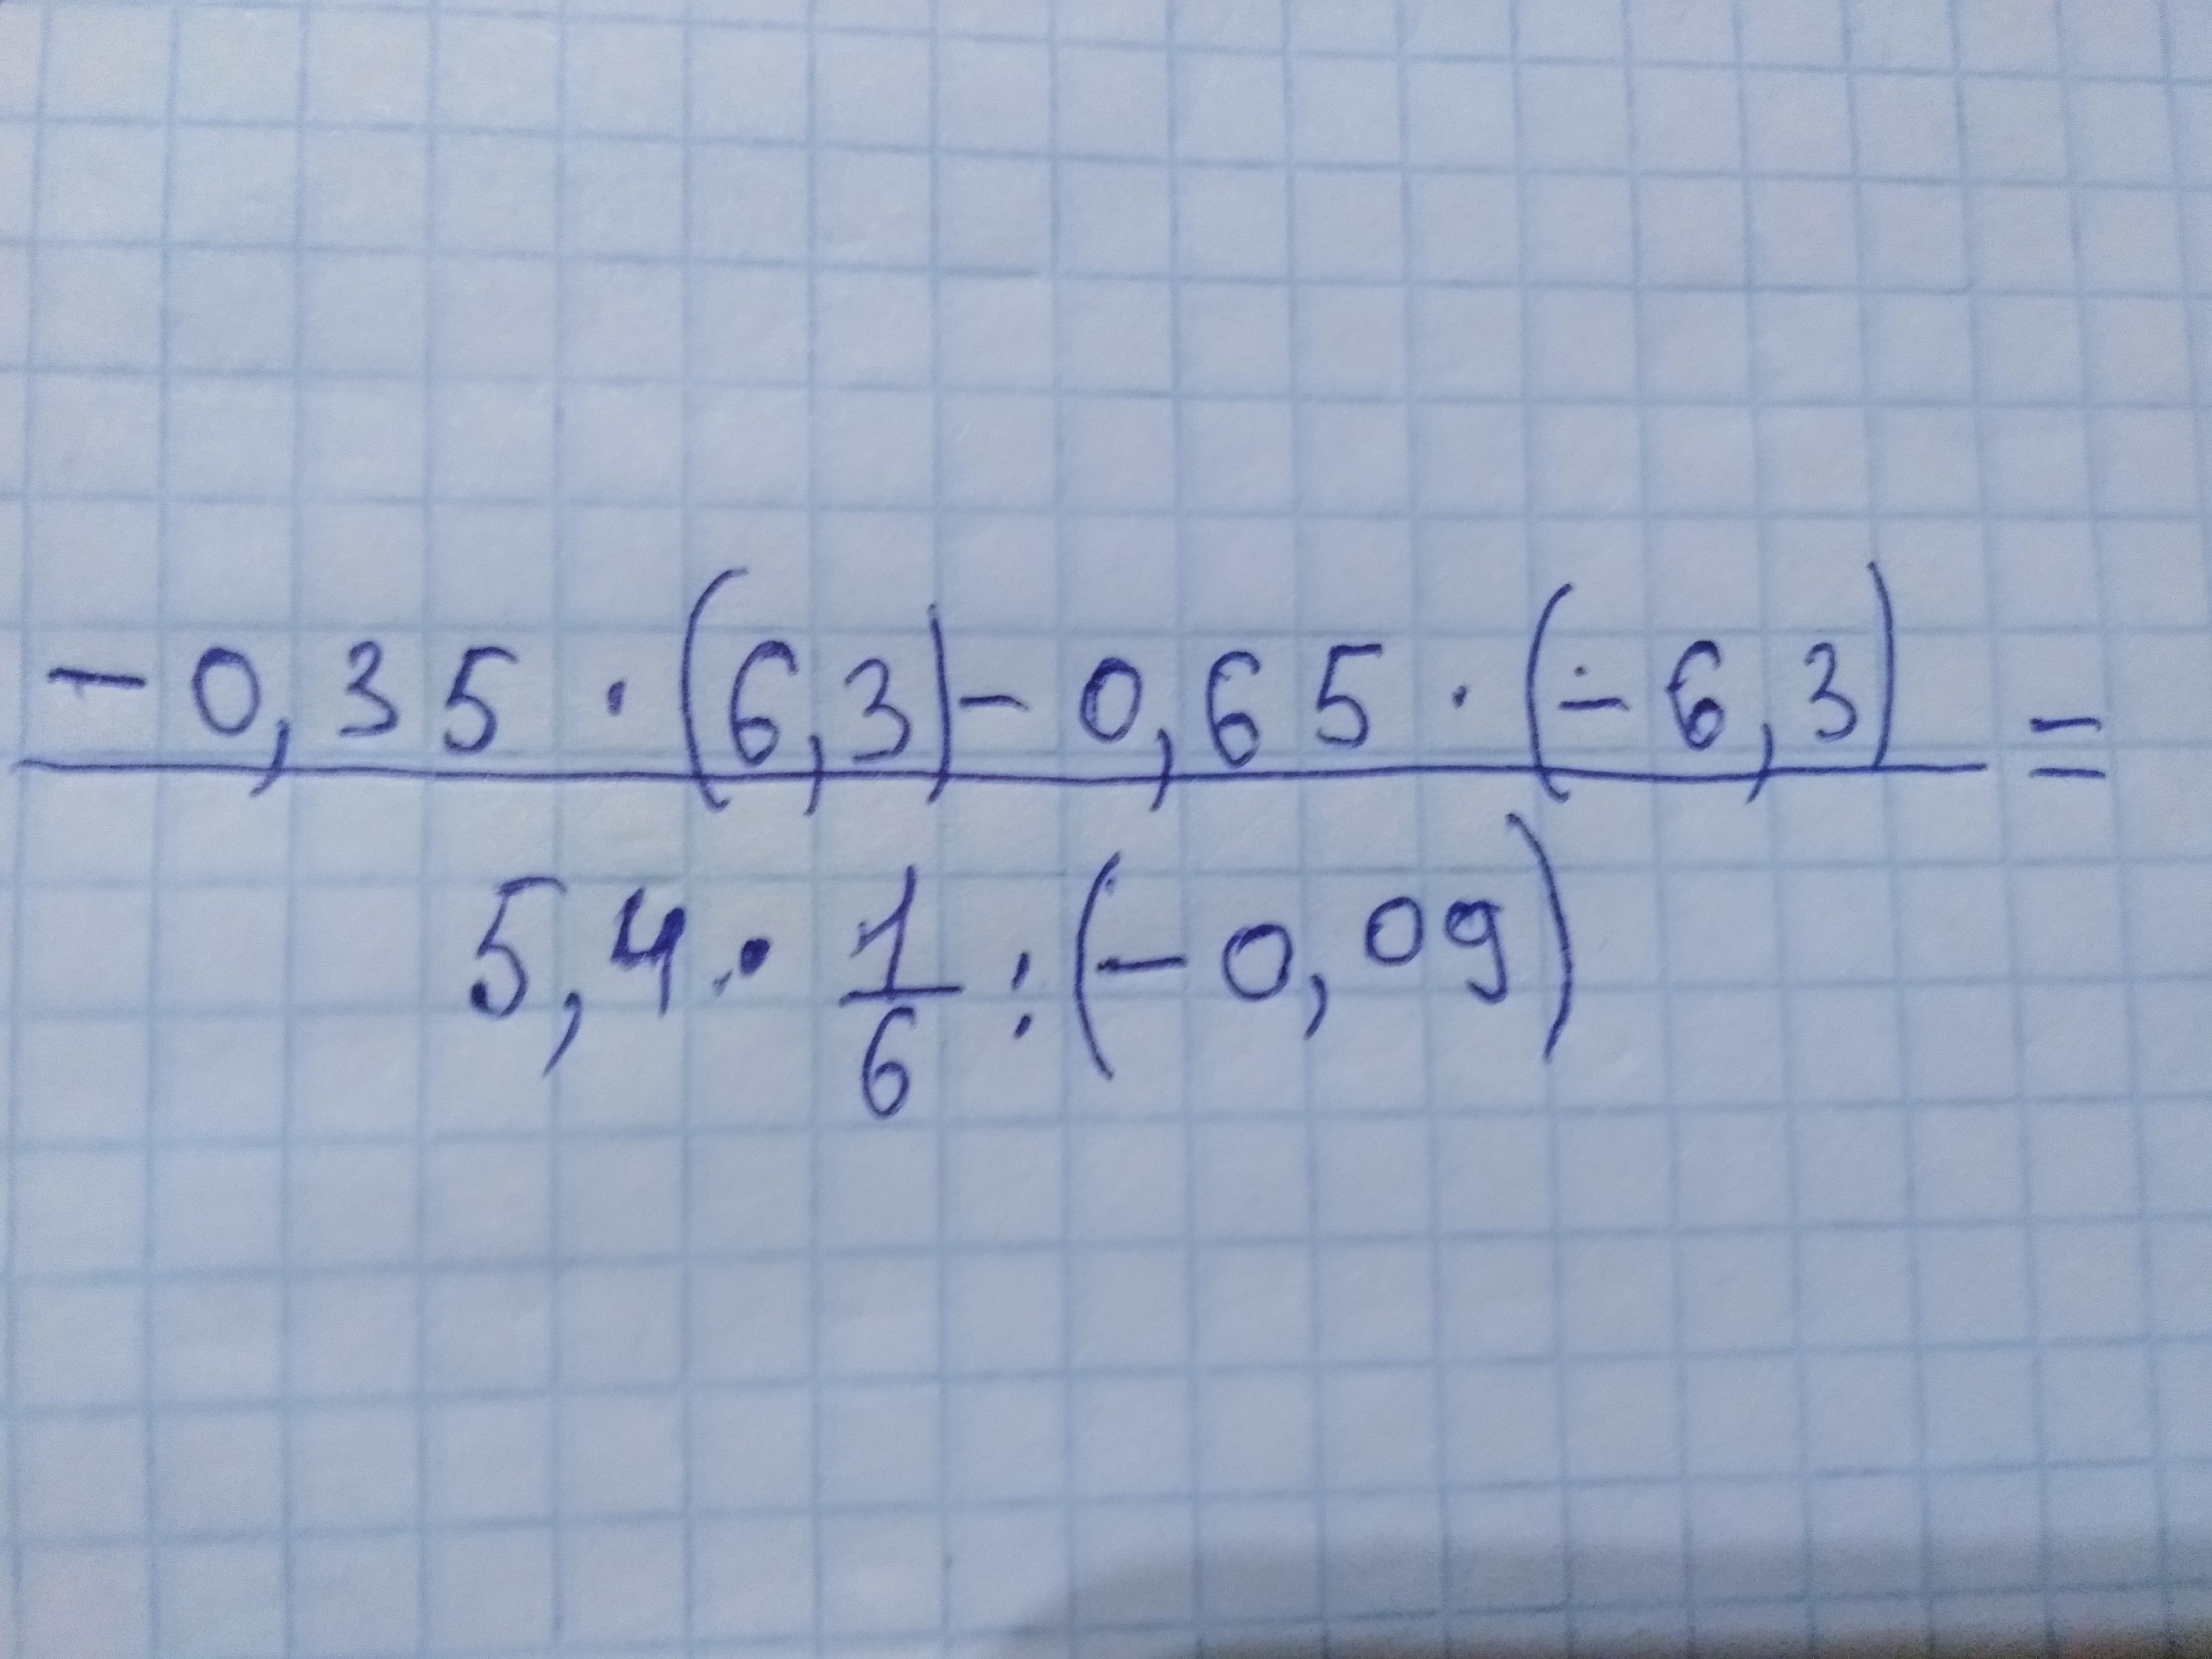 - 0,35 · (6,3) - 0,65 · (- 6,3) =
5,4 · 1/6 : (- 0,09)